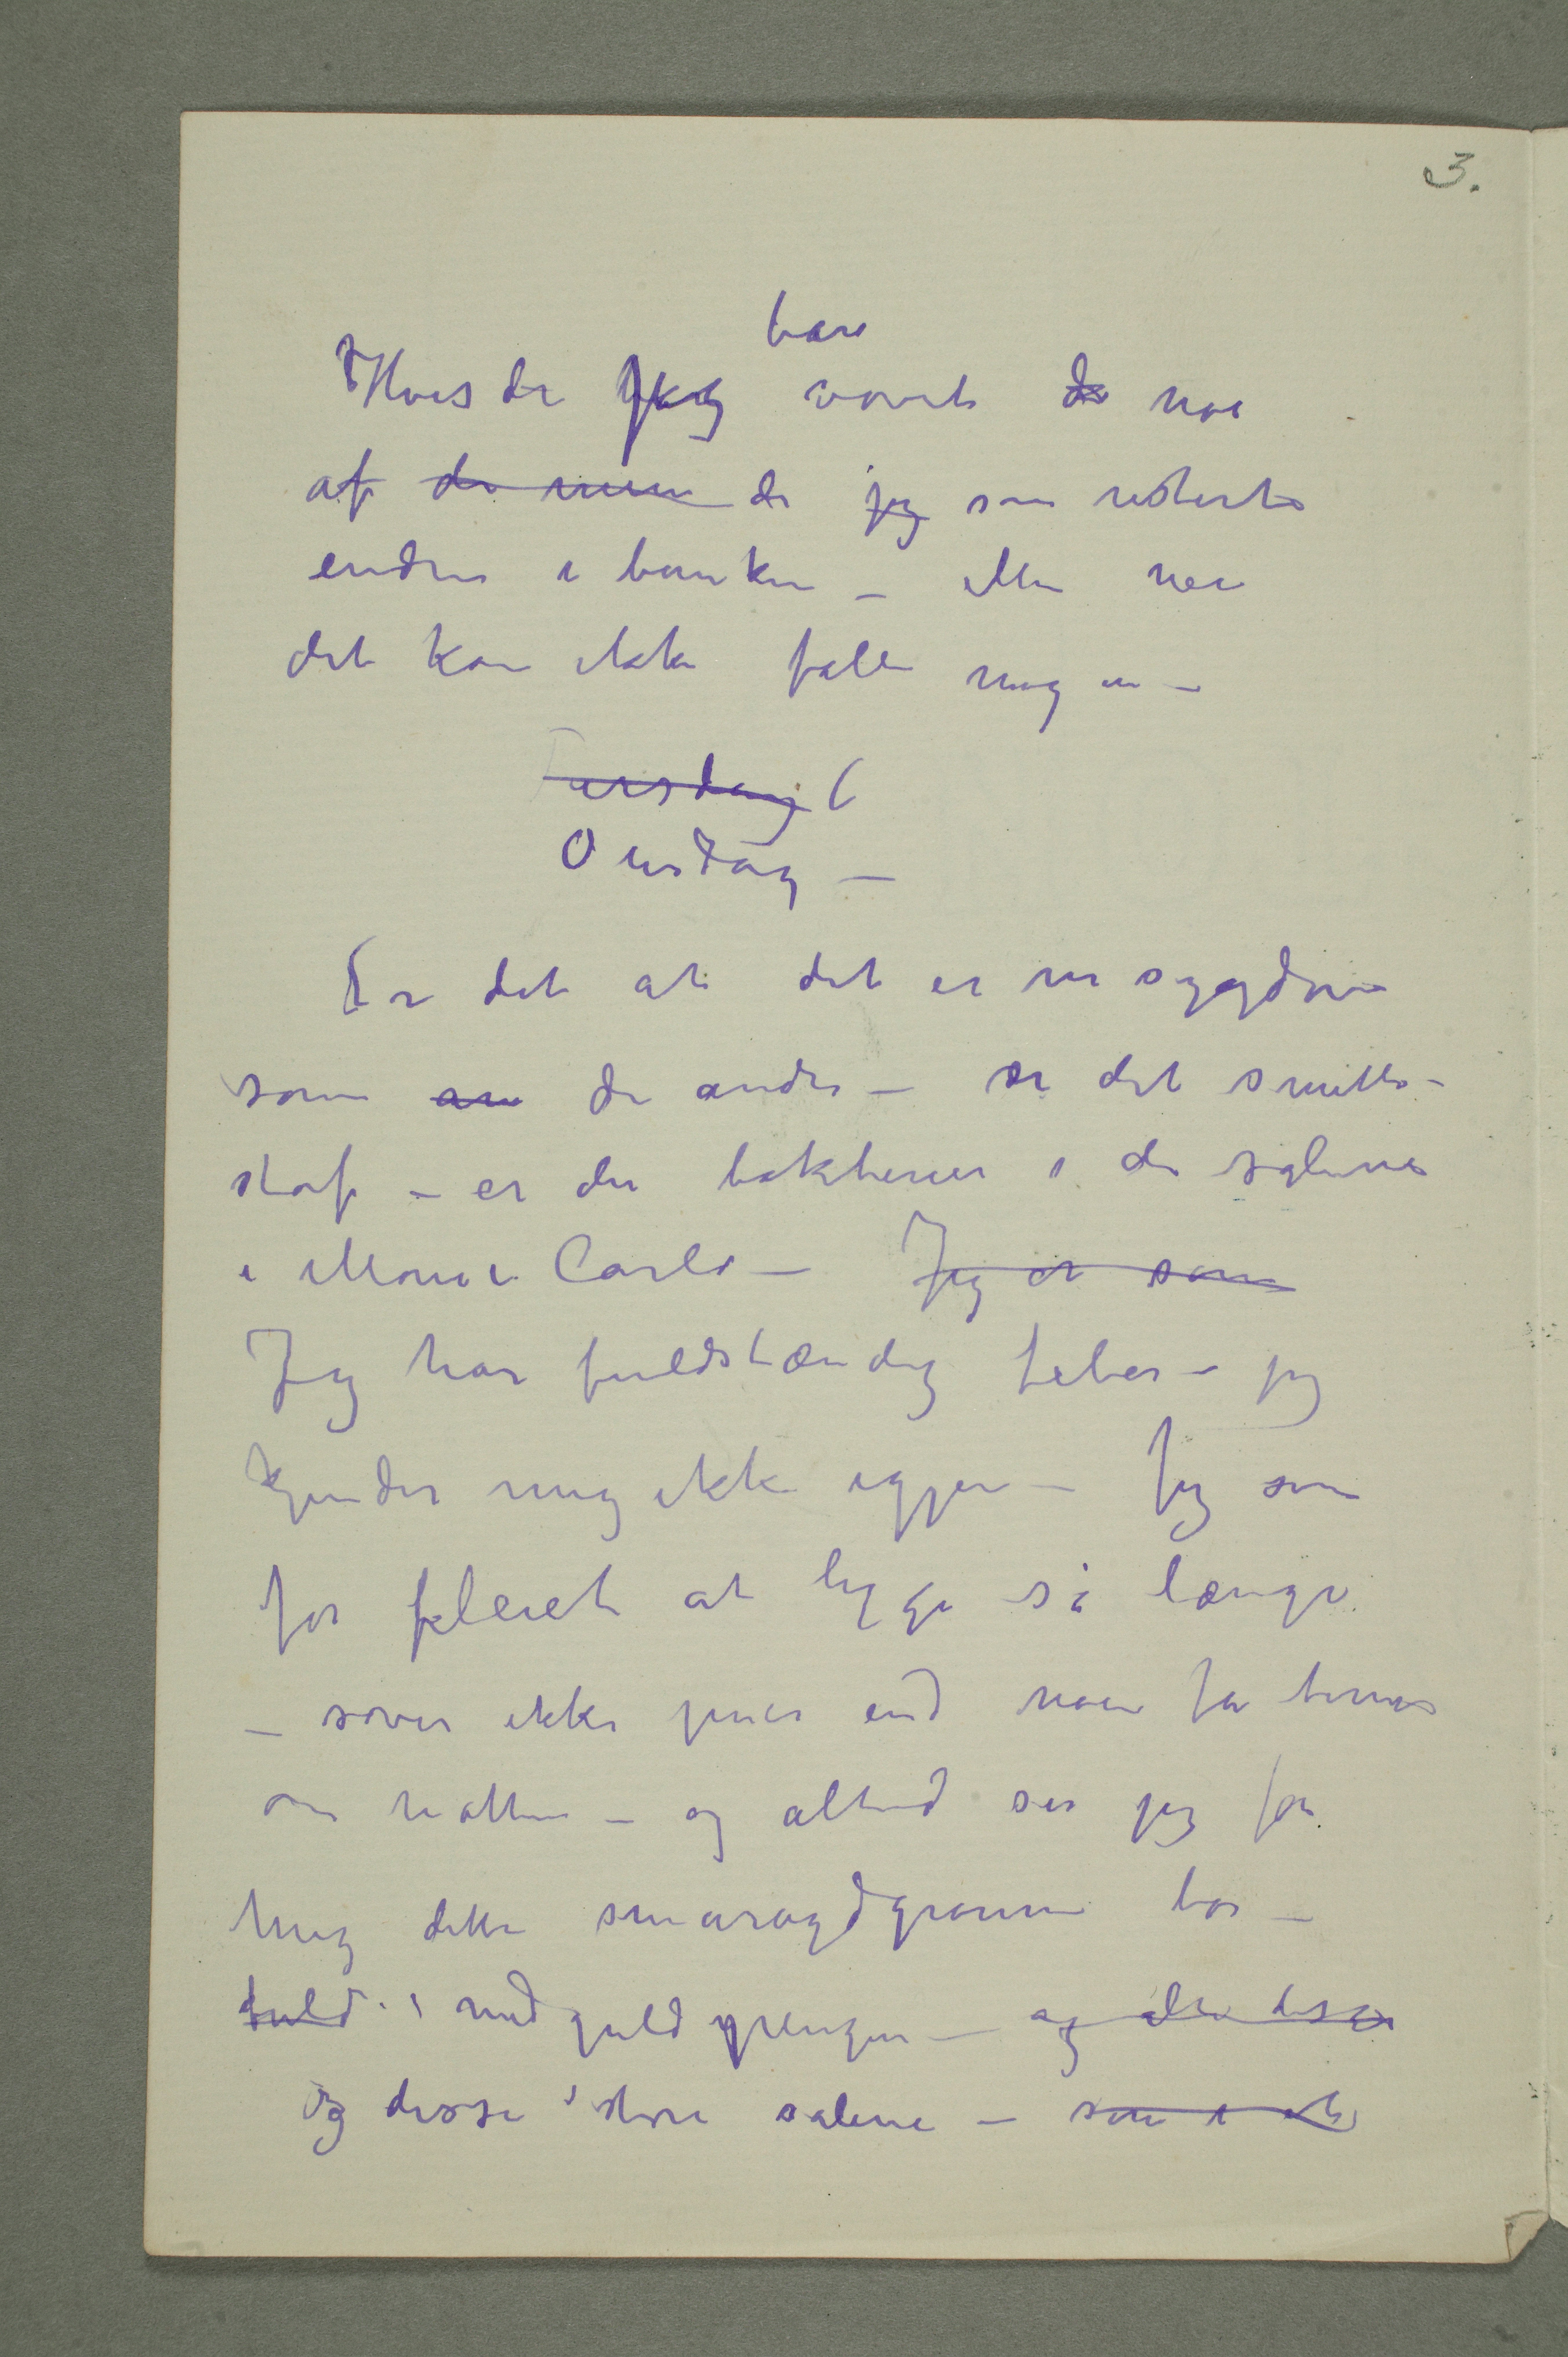 3.
bare
Hvis da jeg vovet de noe
af de mine de jeg som resterte
endnu i banken – Men nei
det kan ikke falle mig in –
Tirsdag
Onsdag –
Er det at det er en sygdom
som de andre – er det smitte-
stof – er der bakterier i de salene
i Monte Carlo – Jeg er som
Jeg har fuldstændig feber – jeg
kjender mig ikke igjen – Jeg som
før pleiet at ligge så længe
– sover ikke mer end noen få timer
om natten – og altid ser jeg for
mig dette smaragdgrønne bor –
fuld med guldpenger – og alle disse
og disse store salene – som i et